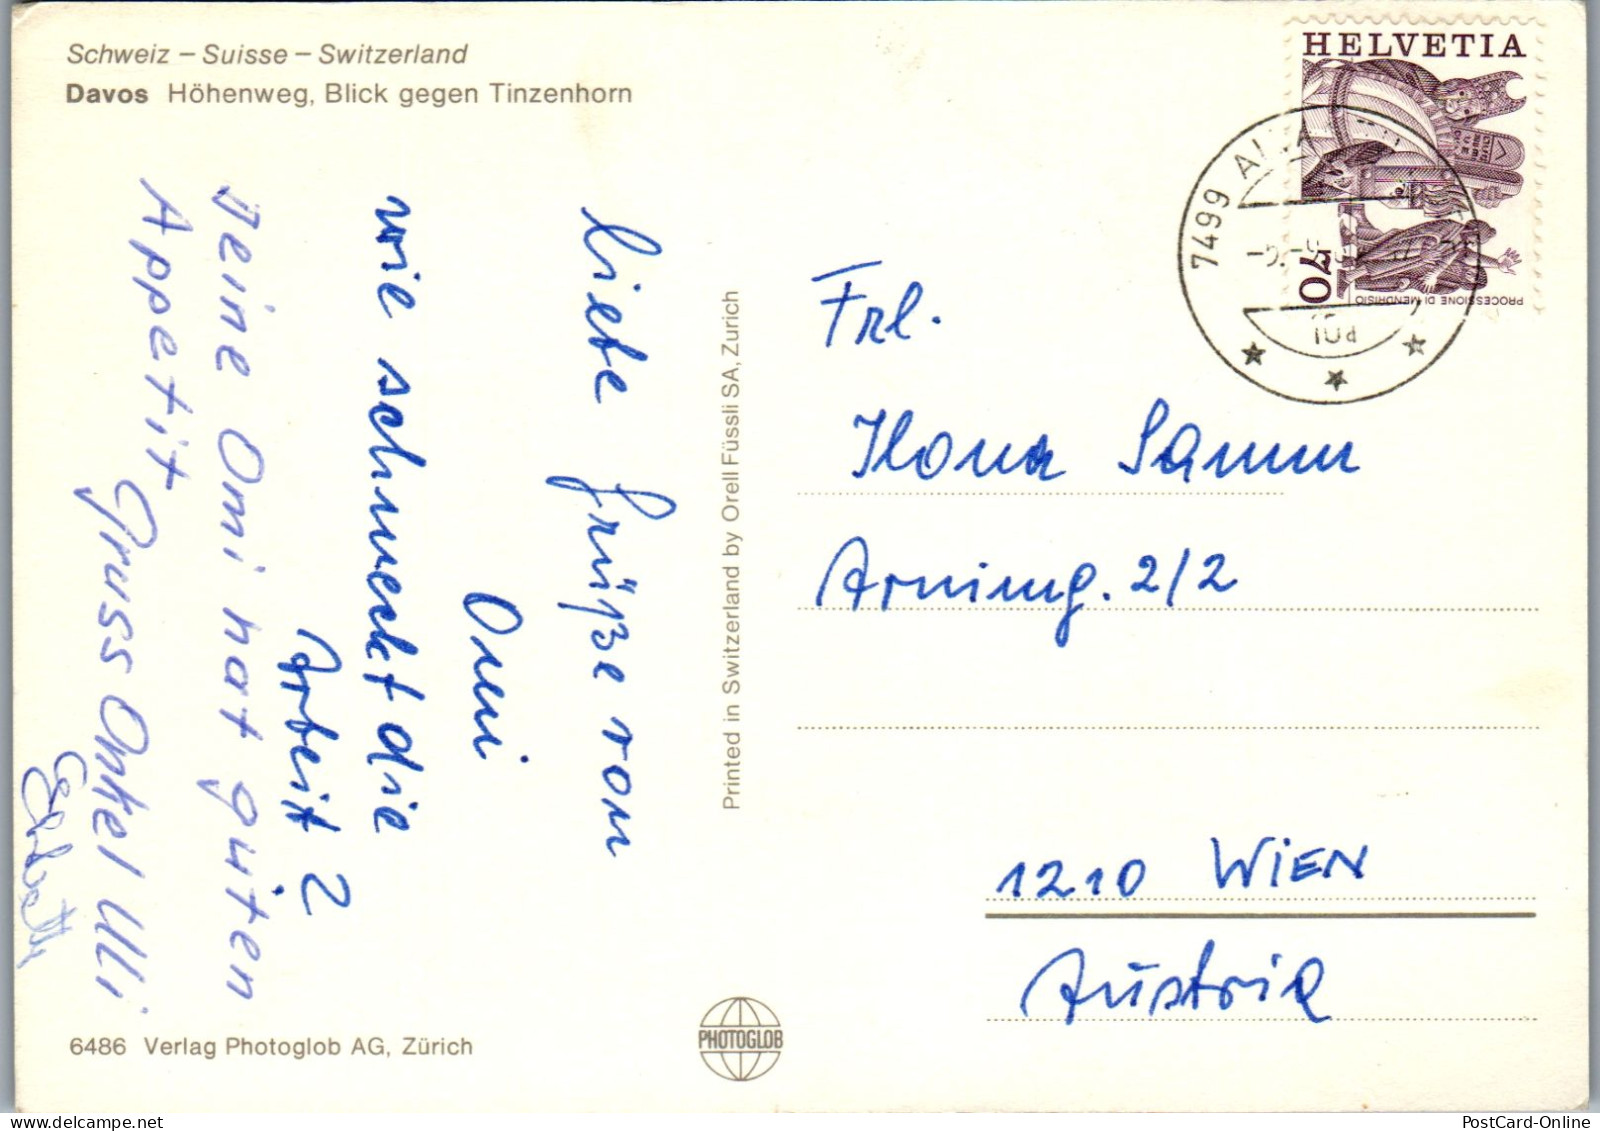 Schweiz – Suisse – Switzerland
Davos Höhenweg, Blick gegen Tinzenhorn
liebe Grüße von
Omi
wie schmeckt die
Arbeit?
Deine Omi hat guten
Appetit
Gruss Onkel Ulli
6486 Verlag Photoglob AG, Zürich
Printed in Switzerland by Orell Füssli SA, Zurich
PHOTOGLOB
HELVETIA
70
PROCESSIONE DI MENDRISIO
7499
Frl.
Ilona Samm
Arnimg. 2/2
1210 WIEN
Austria
PostCard-Online